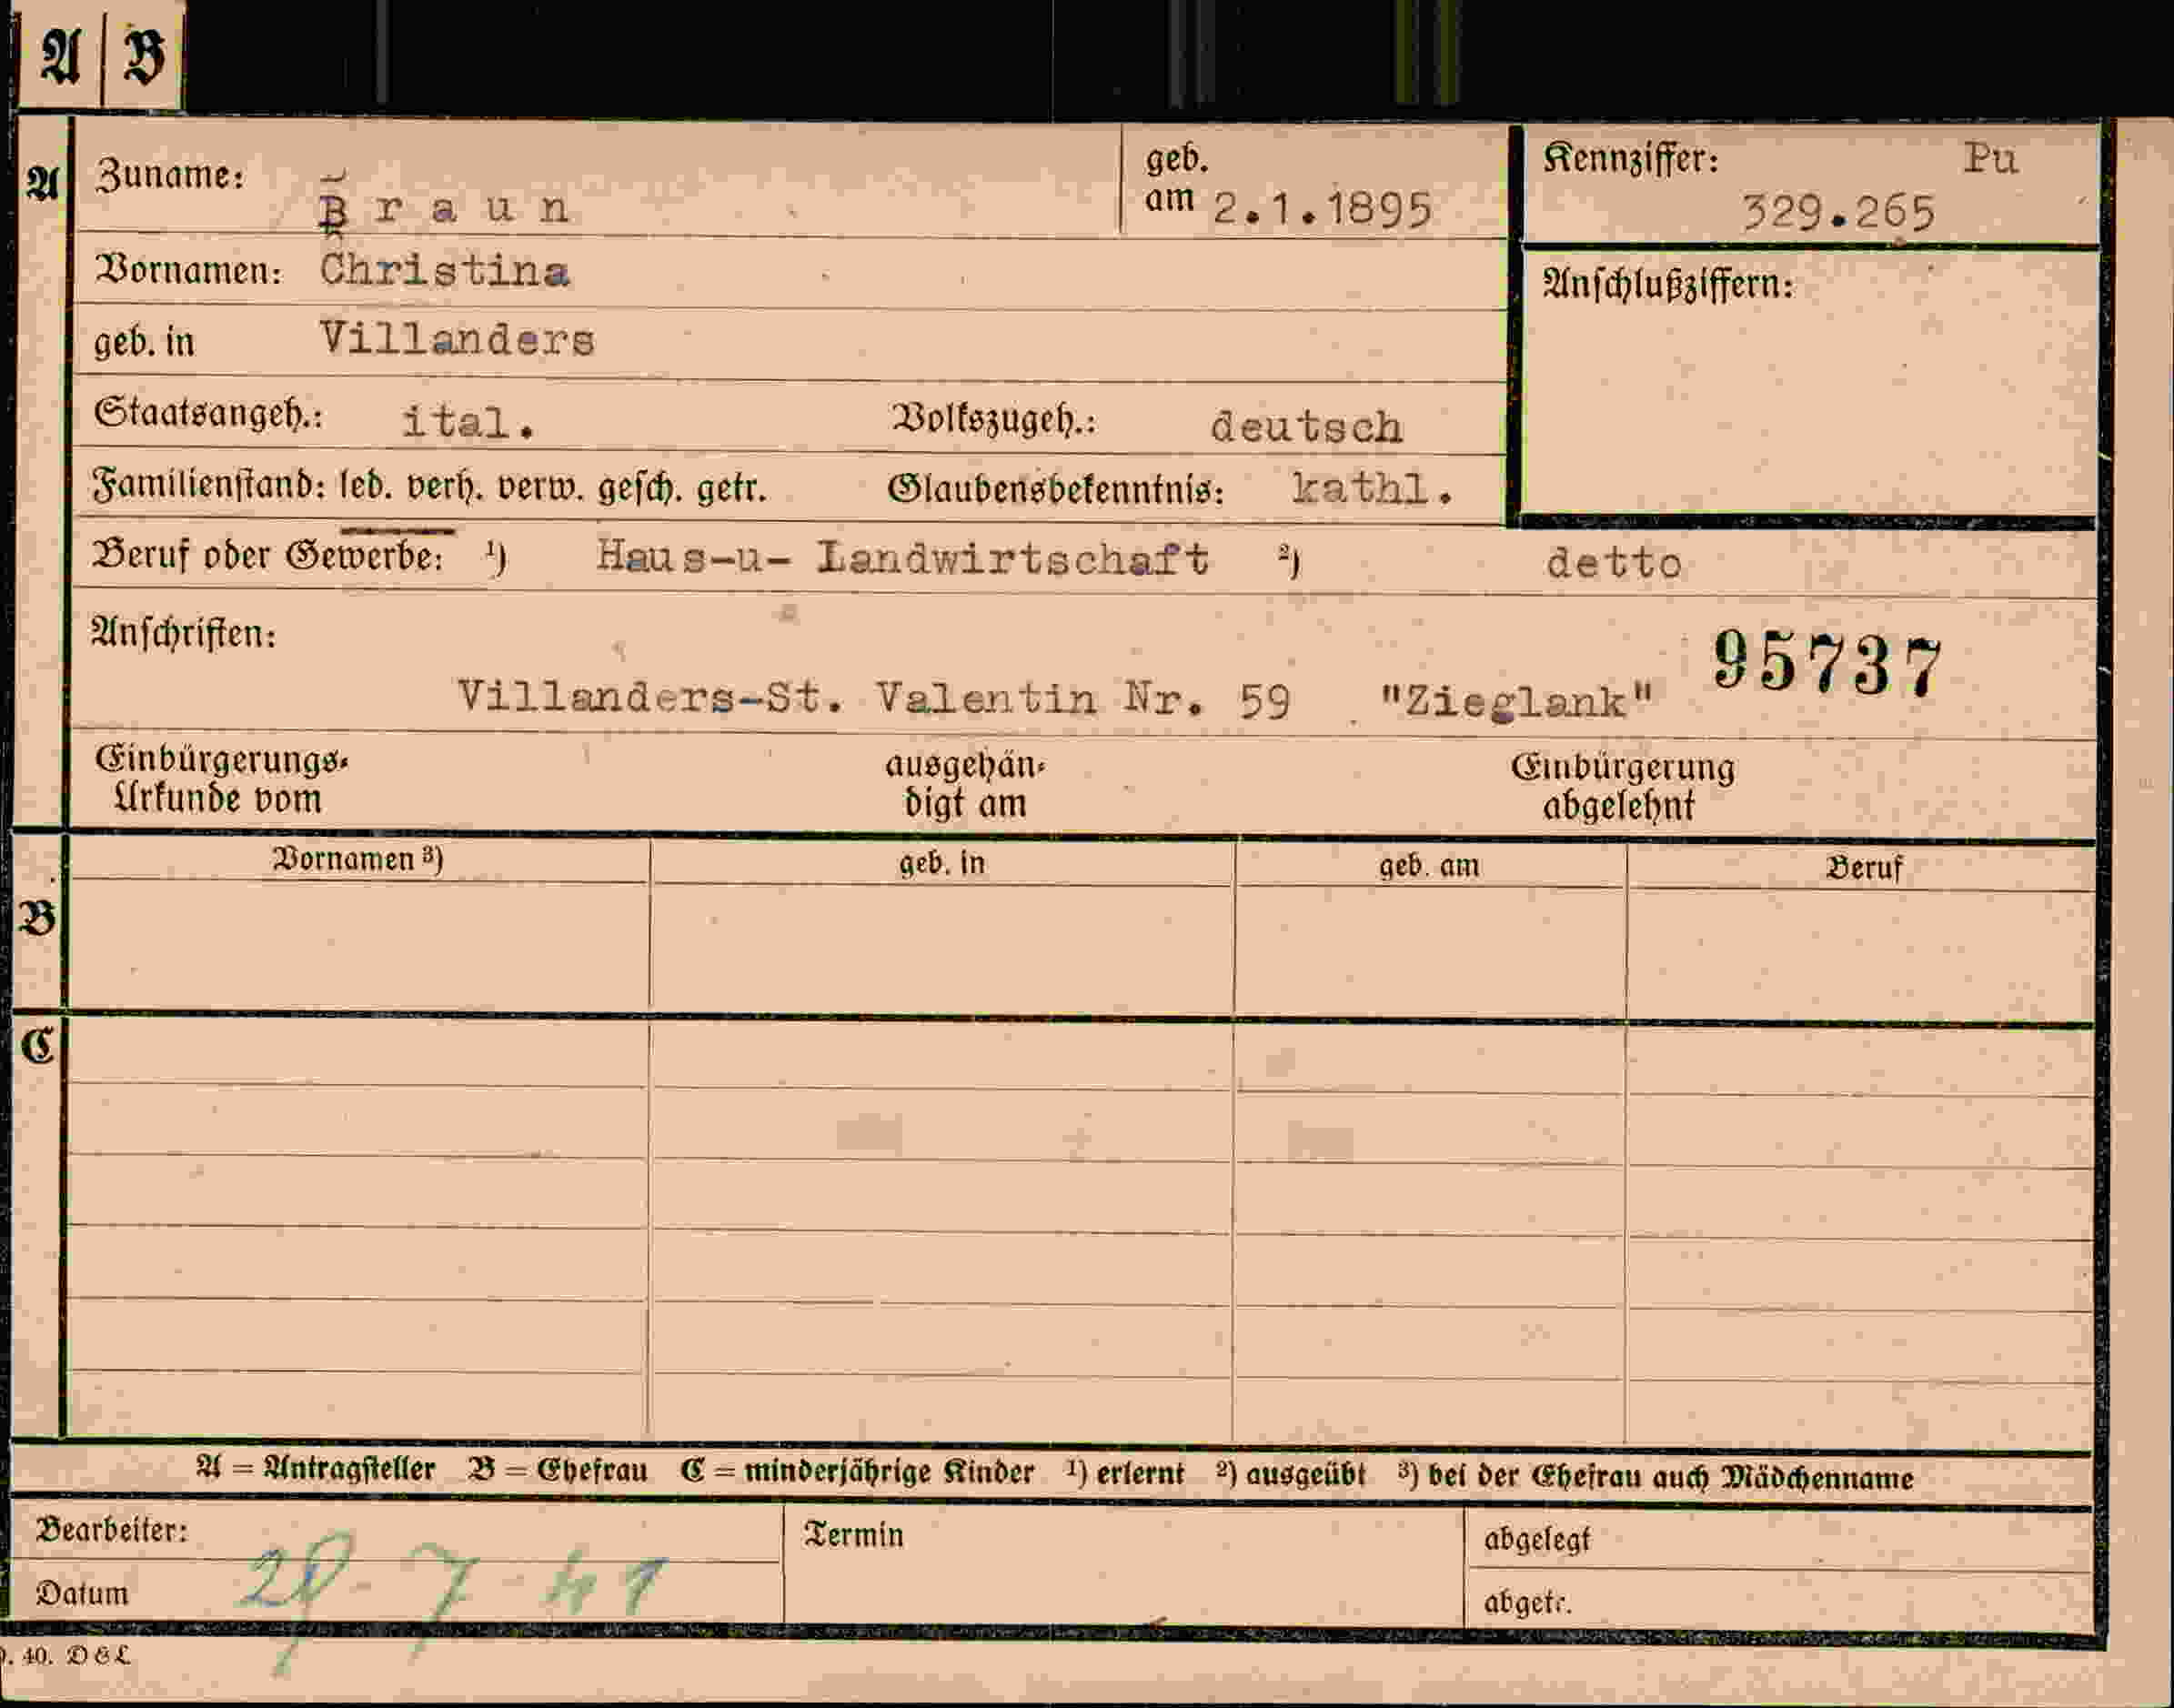 A B
A Zuname: Braun geb. am 2.1.1895 Kennziffer: Pu 329.265
Vornamen: Christina Anschlußziffern:
geb. in Villanders
Staatsangeh.: ital. Volkszugeh.: deutsch
Familienstand: led. verh. verw. gesch. getr. Glaubensbekenntnis: kathl.
Beruf oder Gewerbe: ¹) Haus-u- Landwirtschaft ²) detto
Anschriften: 95737
Villanders-St. Valentin Nr. 59 "Zieglank"
Einbürgerungs- ausgehän- Einbürgerung
Urkunde vom digt am abgelehnt
Vornamen ³) geb. in geb. am Beruf
B
C
A = Antragsteller B = Ehefrau C = minderjährige Kinder ¹) erlernt ²) ausgeübt ³) bei der Ehefrau auch Mädchenname
Bearbeiter: Termin abgelegt
Datum 7 41 abgetr.
40. D&L